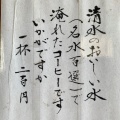 清水のおいしい水
(名水百選)で
淹れたコーヒーです
いかがですか
一杯 二百円